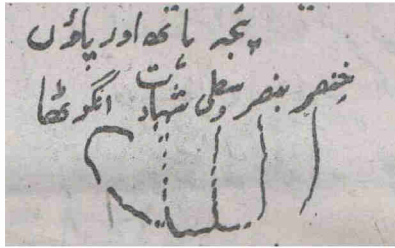 پنجہ ہاتھ اور پاؤں
خنصر بنصر وسطی شہادت انگوٹھا
اللہ